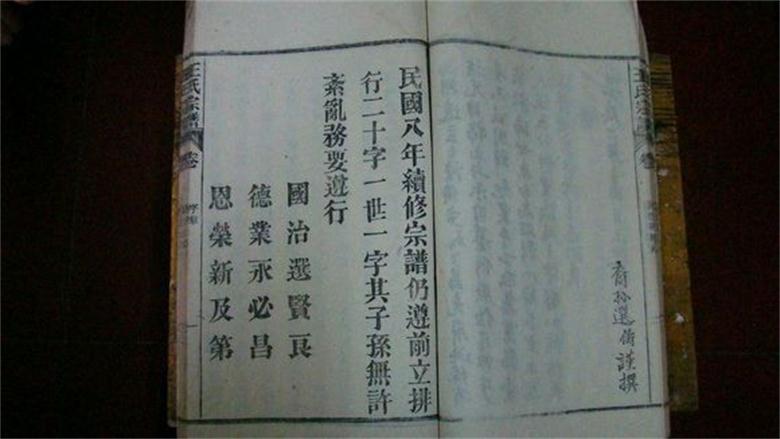 王氏宗譜
卷
裔孫選謹撰
民國八年續修宗譜仍遵前立排
行二十字一世一字其子孫無許
紊亂務要遵行
國治選賢良
德業永必昌
恩榮新及第
王氏宗譜
卷